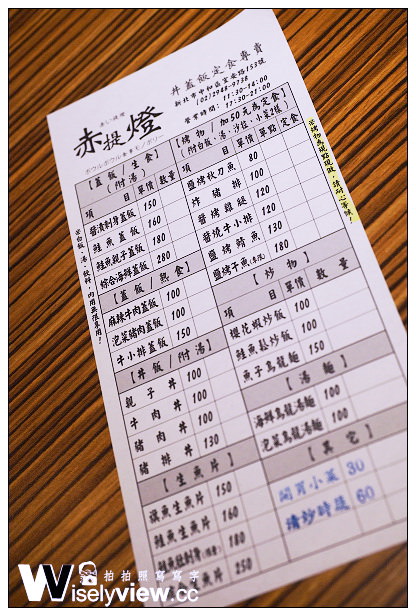 井蓋飯定食專賣
新北市中和區宜安路153號
(02)2948-9738
營業時間：11:30-14:00
17:30-21:00
赤提燈
【蓋飯/生食】
(附湯)
項 目 單價 數量
醬漬刺身蓋飯 150
鮭魚蓋飯 160
鮭魚親子蓋飯 180
綜合海鮮蓋飯 280
【蓋飯/熟食】
麻辣牛肉蓋飯 100
泡菜豬肉蓋飯 100
牛小排蓋飯 150
【丼飯/附湯】
親子丼 100
牛肉丼 100
豬肉丼 100
豬排丼 130
【生魚片】
旗魚生魚片 150
鮭魚生魚片 160
180
250
【烤物/加50元為定食】
(附白飯、湯、沙拉、小菜2樣)
項 目 單價 單點 定食
鹽烤秋刀魚 80
炸豬排 100
鹽烤雞腿 120
醬燒牛小排 120
鹽烤鯖魚 130
鹽烤干魚 180
【炒物】
項 目 單價 數量
櫻花蝦炒飯 100
鮭魚鬆炒飯 100
魚子烏龍麵 150
【湯麵】
海鮮烏龍湯麵 100
泡菜烏龍湯麵 100
【其它】
開胃小菜 30
清炒時蔬 60
※白飯、湯、飲料，內用無限享用！
※烤物為現點現做，請耐心等候！
拍拍照寫寫字
Wiselyview.cc